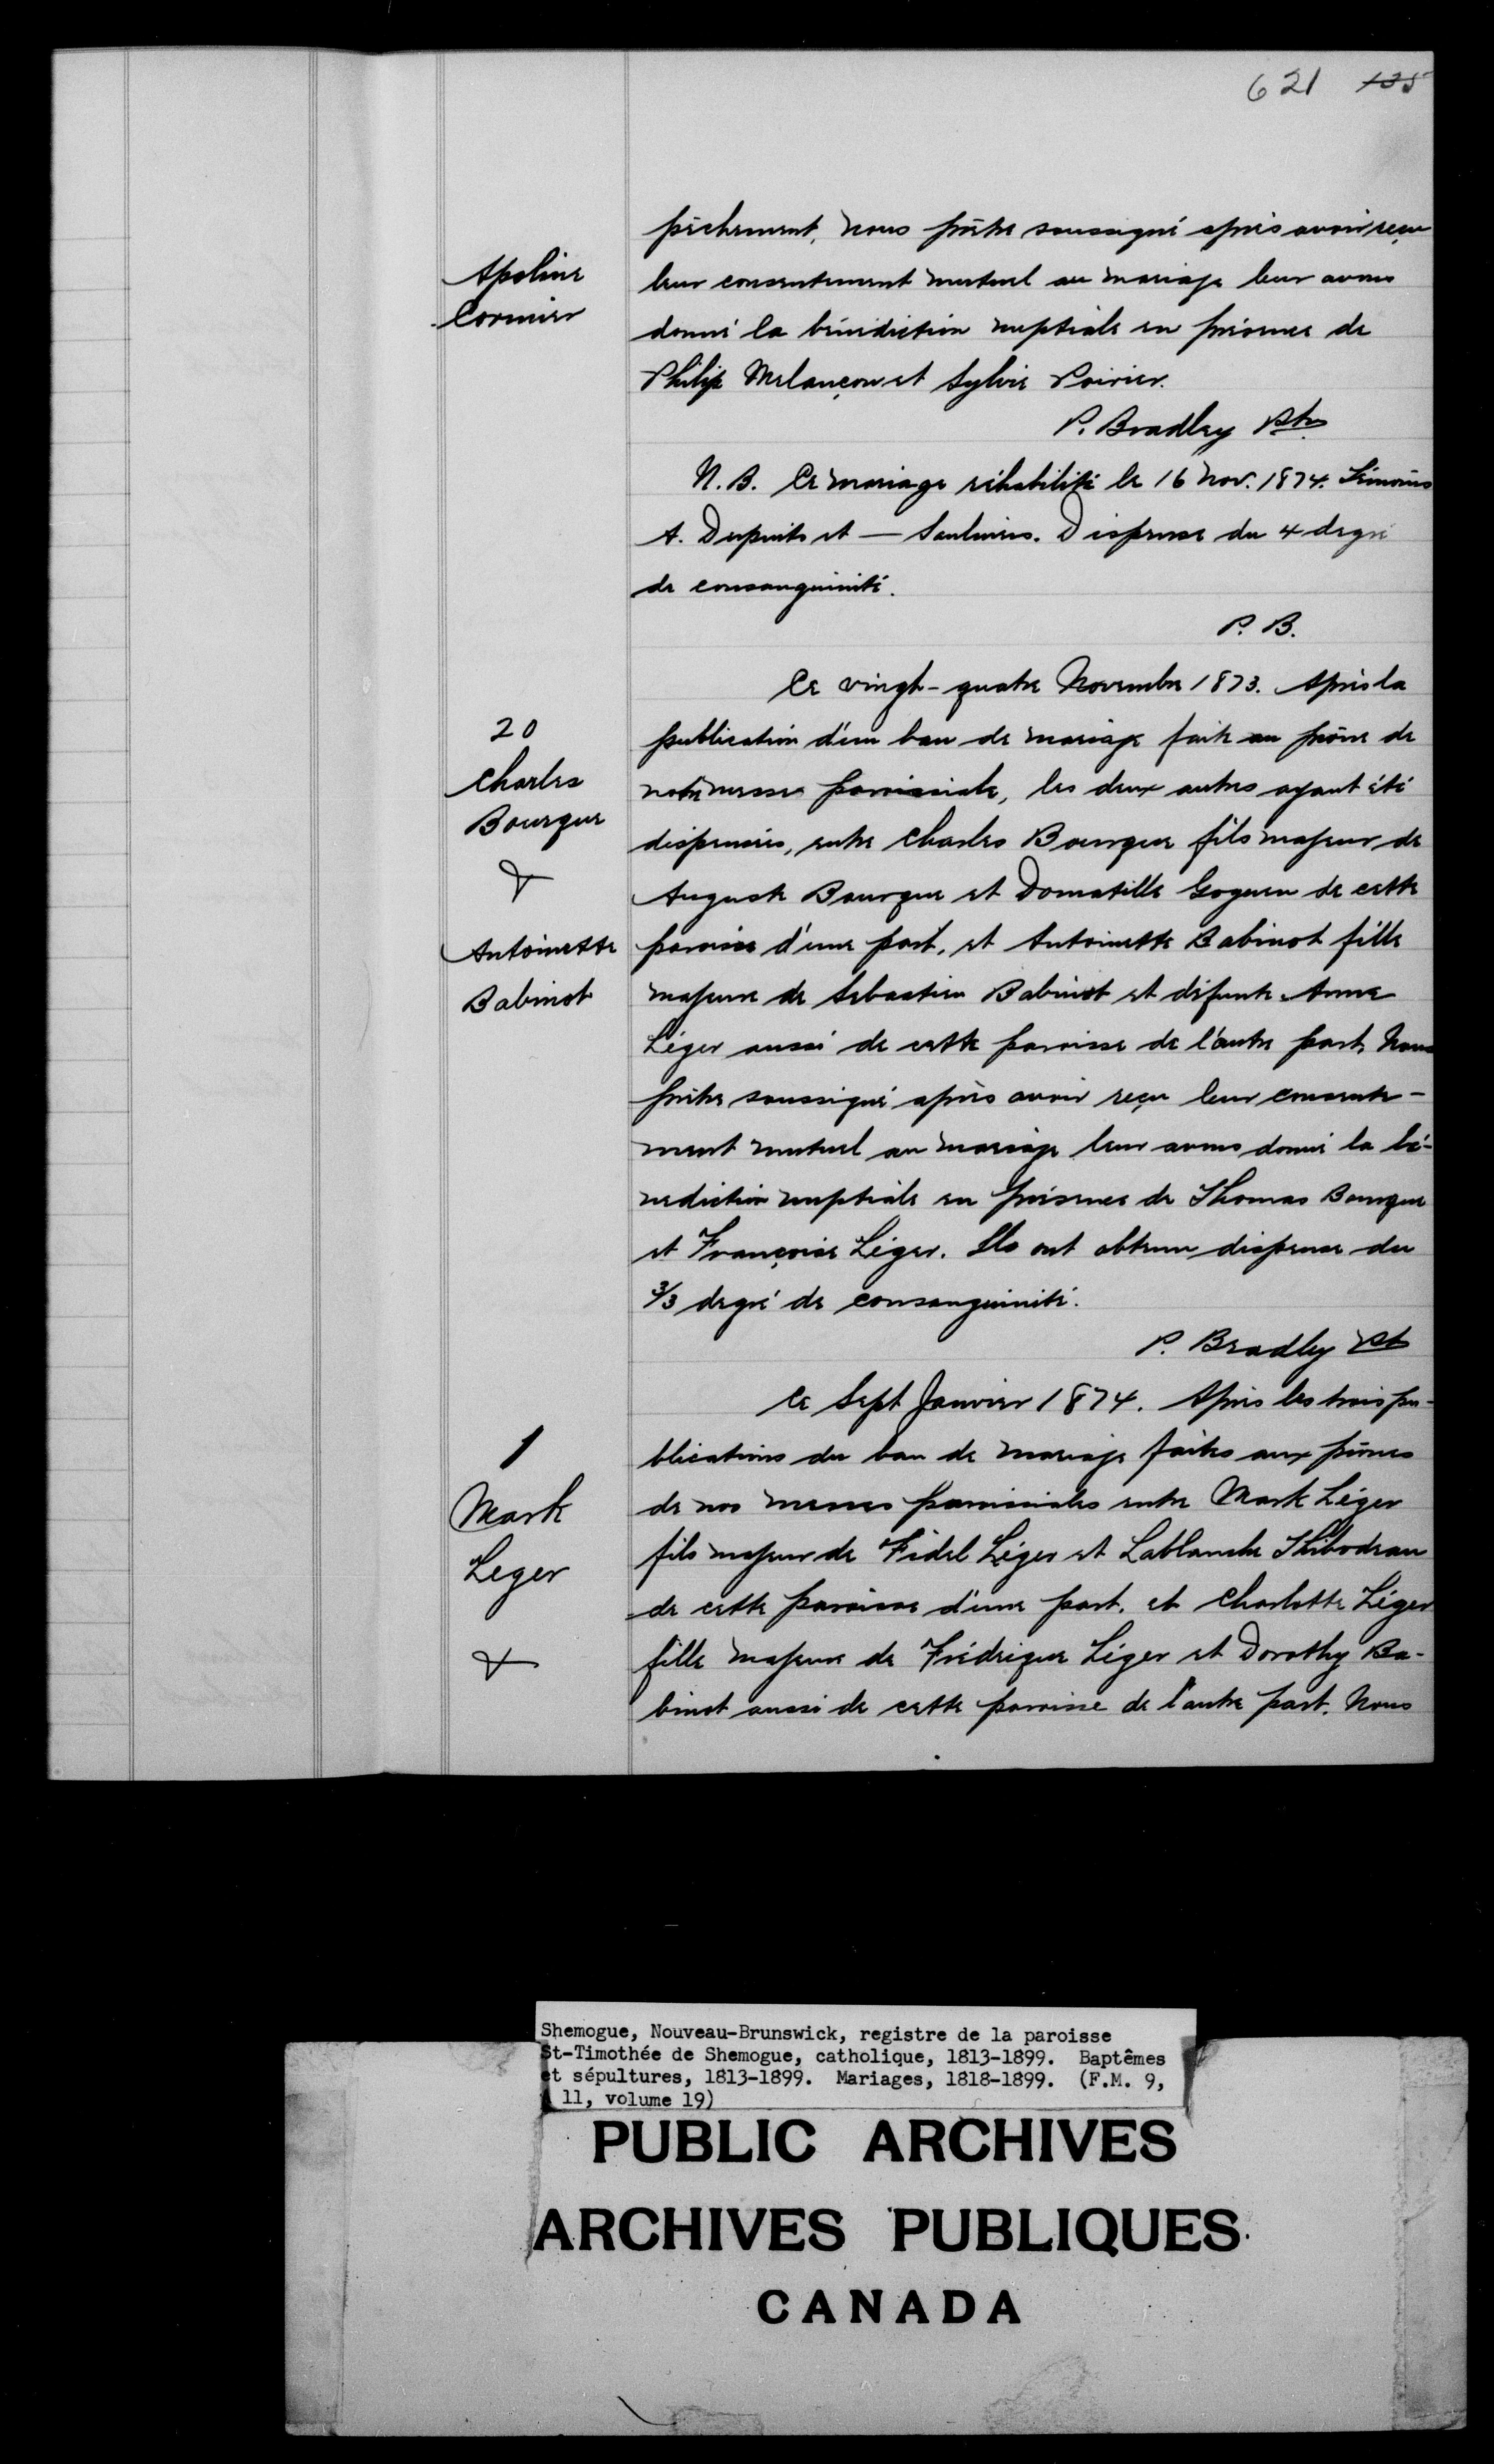 621 135
Apoline
Cormier
pêchement, nous prêtre soussigné après avoir reçu
leur consentement mutuel au mariage leur avons
donné la bénédiction nuptiale en présence de
Philip Melançon et Sylvie Poirier.
P. Bradley Ptre
N.B. Ce mariage réhabilité le 16 Nov. 1874. Témoins
A. Dupuits et — Saulniers. Dispense du 4 degré
de consanguinité.
P. B.
20
Charles
Bourque
&
Antoinette
Babinot
Ce vingt-quatre Novembre 1873. Après la
publication d'un ban de mariage faite au prône de
notre messe paroissiale, les deux autres ayant été
dispensées, entre Charles Bourque fils majeur de
Auguste Bourque et Domatille Goguen de cette
paroisse d'une part, et Antoinette Babinot fille
majeure de Sebastien Babinot et défunte Anne
Léger aussi de cette paroisse de l'autre part, Nous
prêtre soussigné après avoir reçu leur consente-
ment mutuel au mariage leur avons donné la bé-
nediction nuptiale en présence de Thomas Bourque
et Françoise Léger. Ils ont obtenu dispense du
3/3 degré de consanguinité.
P. Bradley Pt
1
Mark
Leger
&
Ce Sept Janvier 1874. Après les trois pu-
blications du ban de mariage faites aux prônes
de nos messes paroissiales entre Mark Léger
fils majeur de Fidel Léger et Lablanche Thibodeau
de cette paroisse d'une part, et Charlotte Léger
fille majeure de Frédrique Léger et Dorothy Ba-
binot aussi de cette paroisse de l'autre part, Nous
Shemogue, Nouveau-Brunswick, registre de la paroisse
St-Timothée de Shemogue, catholique, 1813-1899. Baptêmes
et sépultures, 1813-1899. Mariages, 1818-1899. (F.M. 9,
11, volume 19)
PUBLIC ARCHIVES
ARCHIVES PUBLIQUES
CANADA